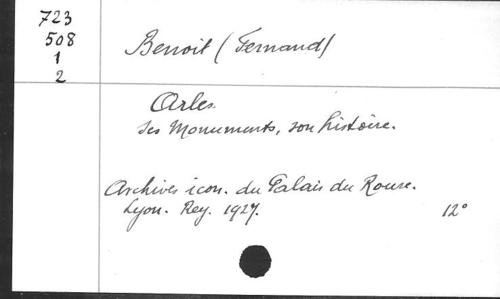 723
508
1
2
Benoit (Fernand)
Arles.
Ses Monuments, son histoire.
Archives icon. du Palais du Roure.
Lyon. Rey. 1927. 12°